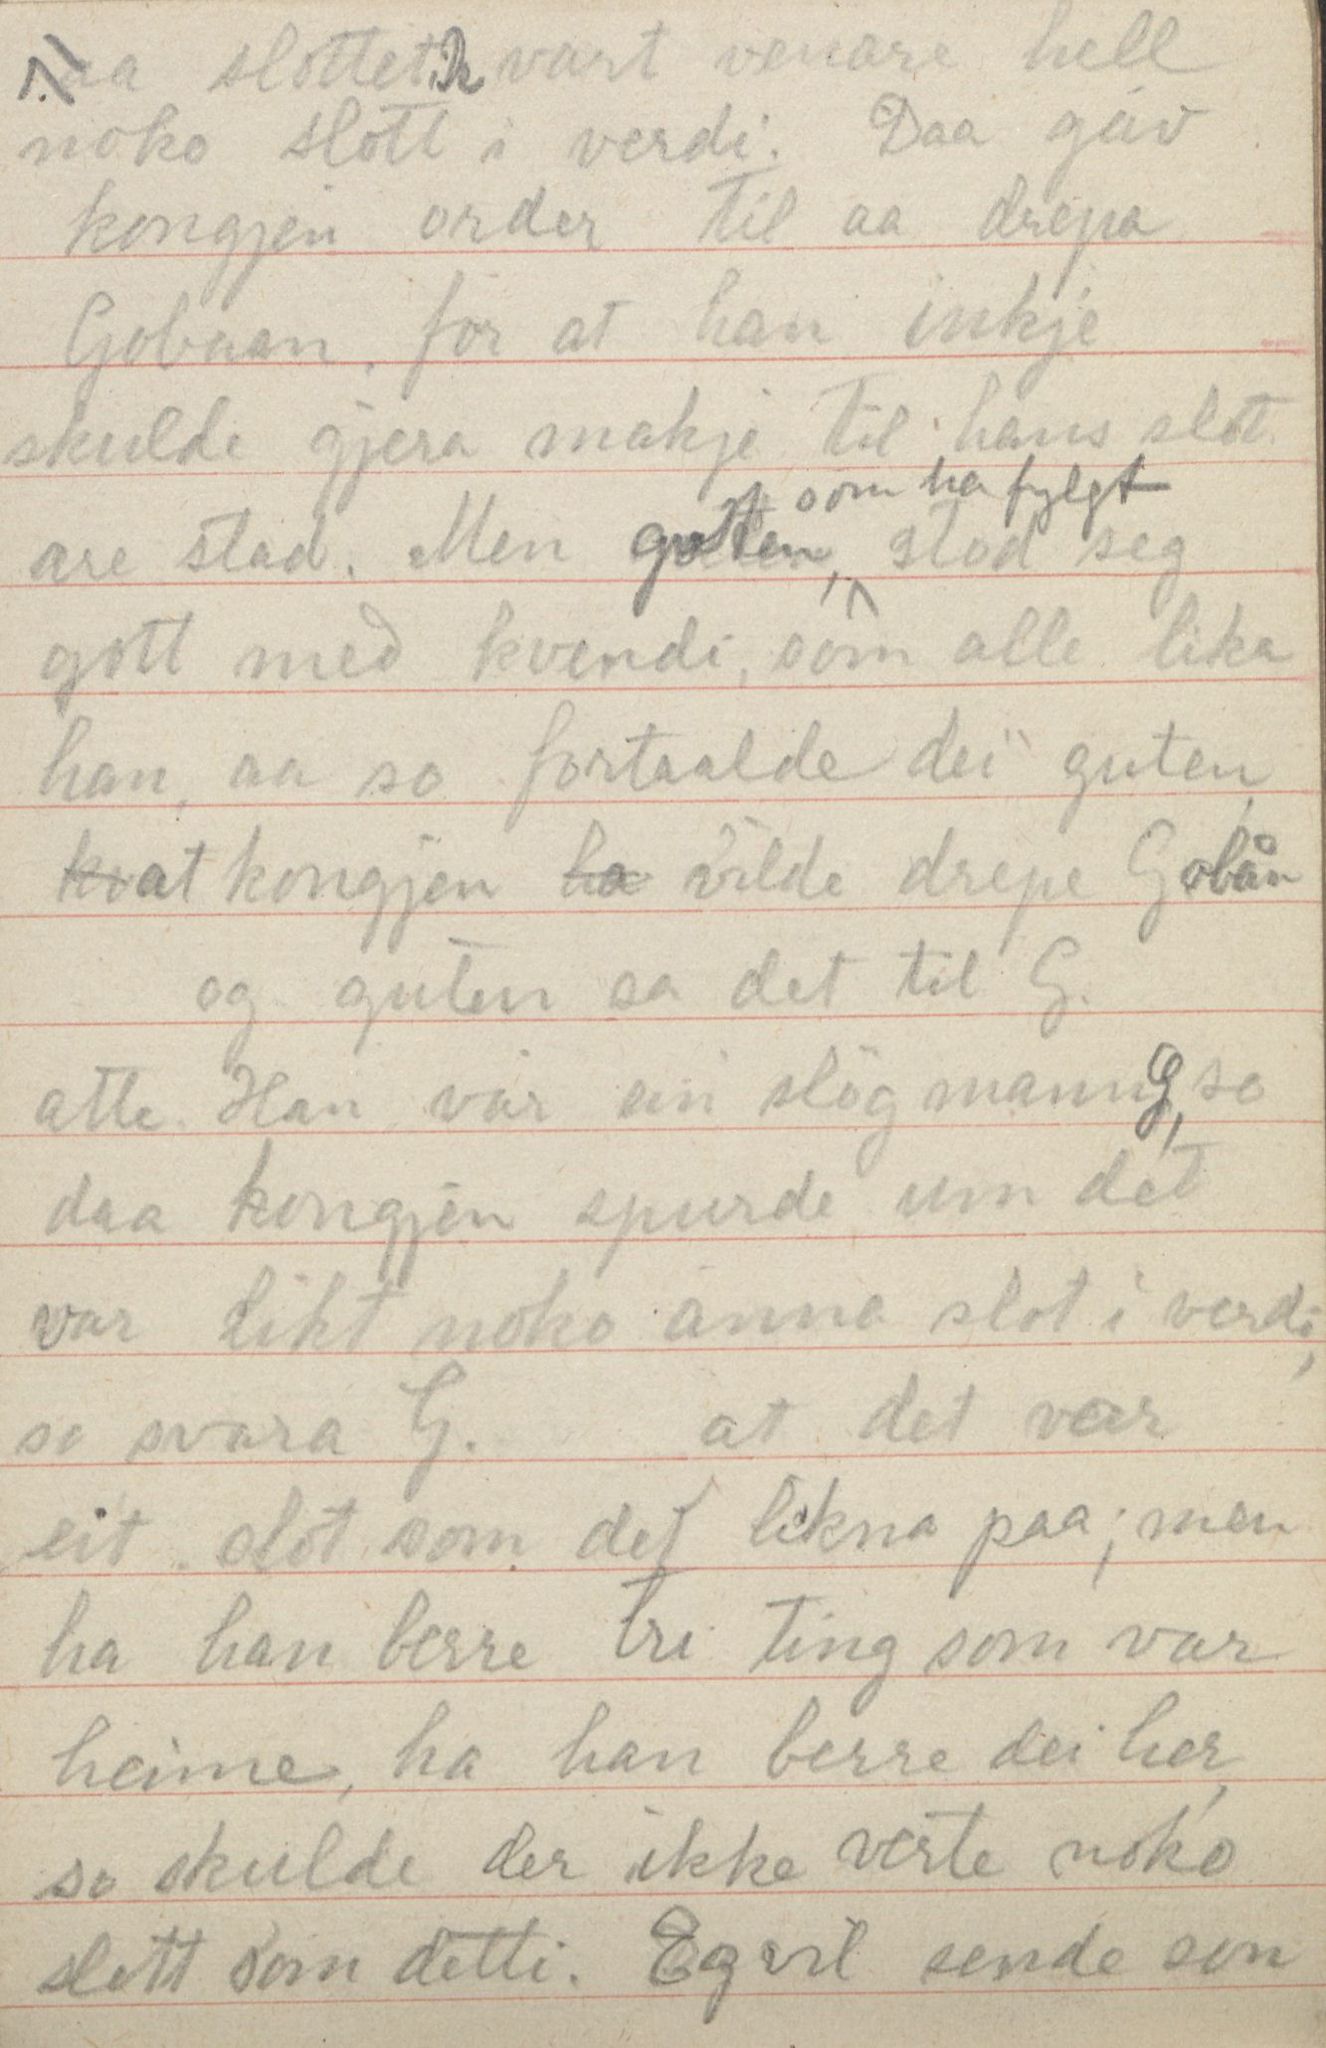 aa slottet vart venare hell
noko slott i verdi. Daa gav
kongjen order til aa drepa
Gobaan, for at han inkje
skulde gjera makje til hans slot
som ha fylgt
are stad. Men guten, stod seg
gott med kvendi, som alle lika
han, aa so fortaalde dei guten,
kvat kongjen ha vilde drepe Gobån
og guten sa det til G.
atte. Han var ein slög mann G, so
daa kongjen spurde um det
var likt noko anna slot i verdi,
so svara G. at det var
eit slot som det likna paa; men
ha han berre tri ting som var
heime, ha han berre dei her,
so skulde der ikke verte noko
slott som detti. Eg vil sende son